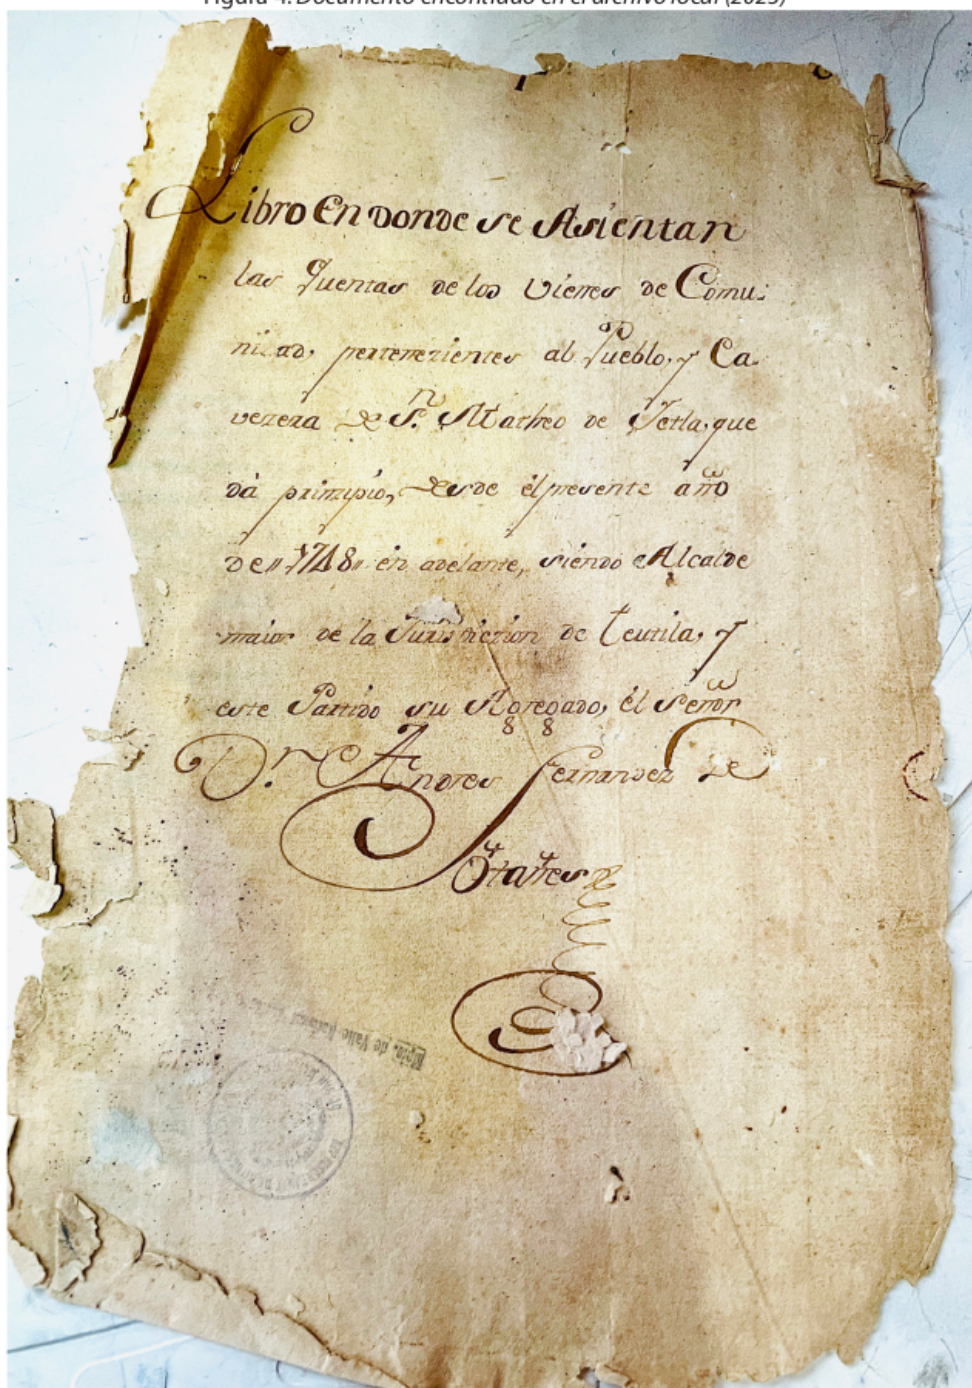 Figura 4. Documento encontrado en el archivo local (2023)
Libro En donde se Asientan
las Quentas de los Vienes de Comu-
nidad, pertenezientes al Pueblo, y Ca-
vezera de Sn. Matheo de Yetla, que
dá prinzipio, desde el presente año
de 1748 en adelante, siendo Alcalde
maior de la Jurisdiczion de Teutila, y
este Partido su Agregado, el Señor
Dn. Andres Fernandez de
Otañes
Mpio. de Valle Nacional